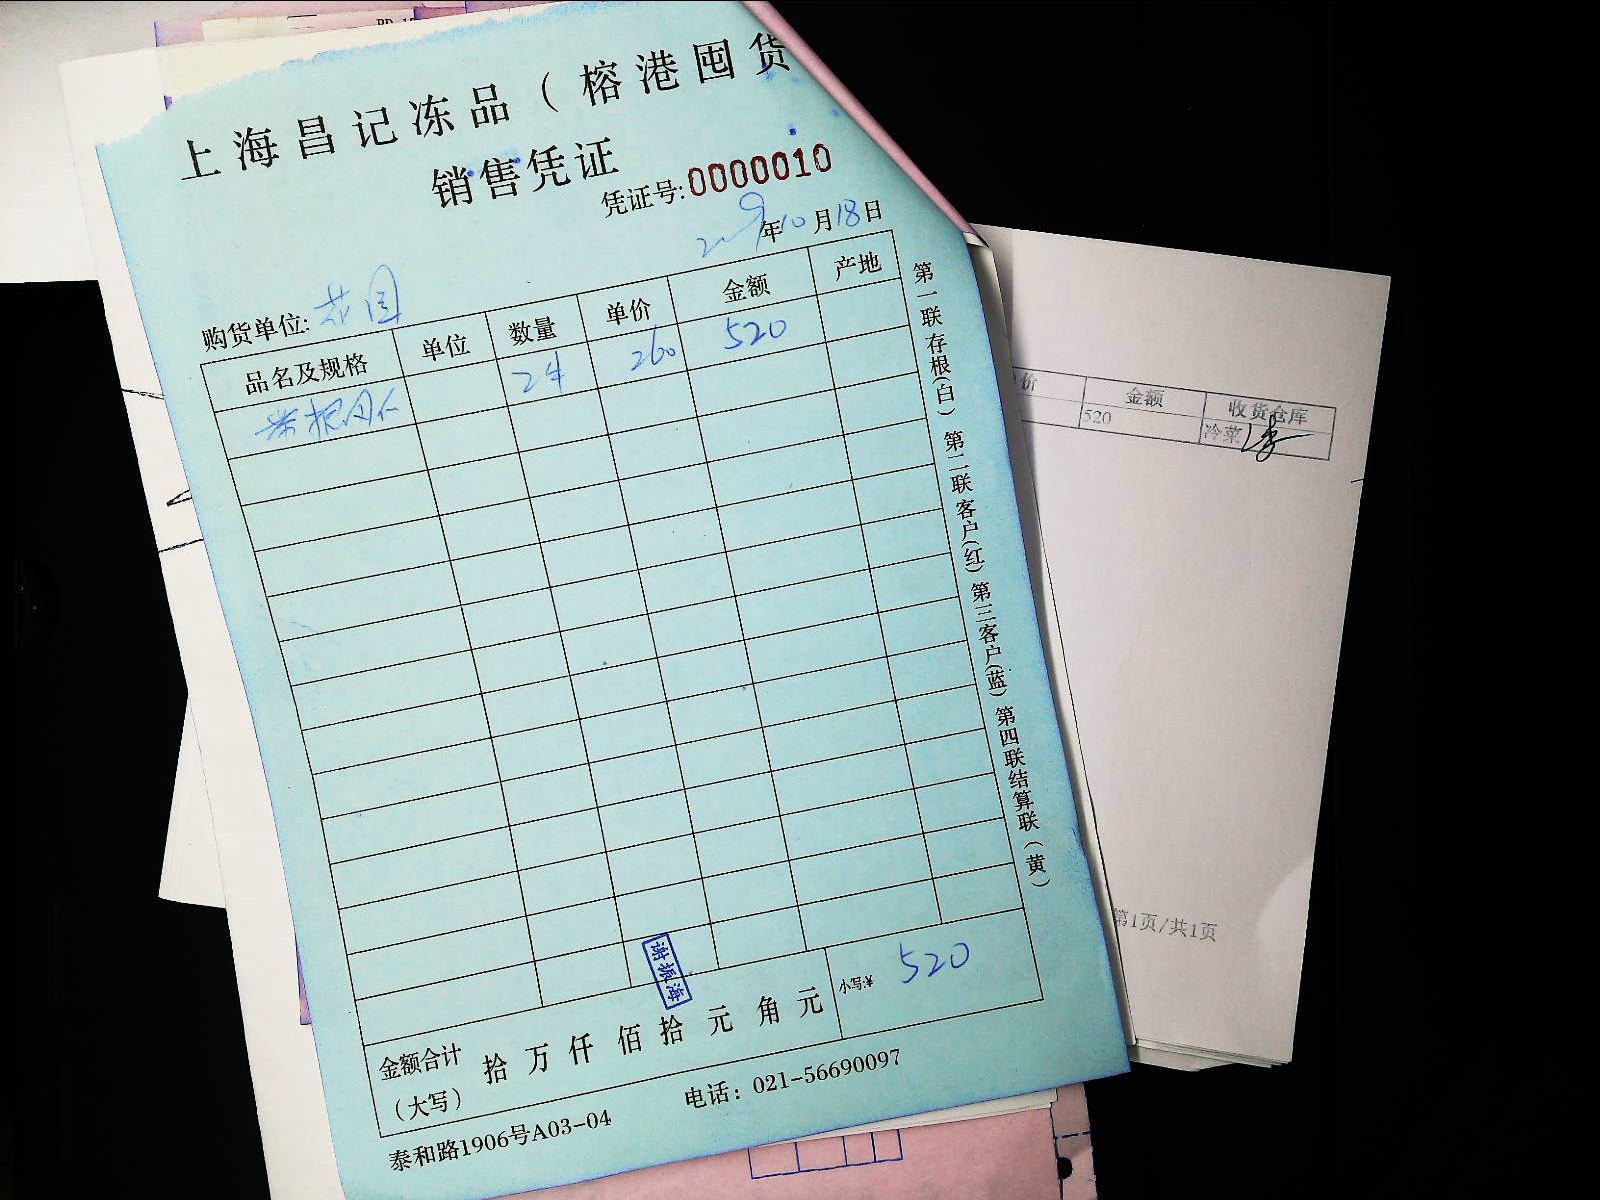 上海昌记冻品（榕港囤货
销售凭证
凭证号:0000010
2019年10月18日
购货单位:花园
品名及规格 单位 数量 单价 金额 产地
24 260 520
第一联存根(白) 第二联客户(红) 第三客户(蓝) 第四联结算联(黄)
谢振海
金额合计
（大写）
拾 万 仟 佰 拾 元 角 元
小写:¥ 520
泰和路1906号A03-04 电话：021-56690097
价 金额 收货仓库
520 冷菜
第1页/共1页